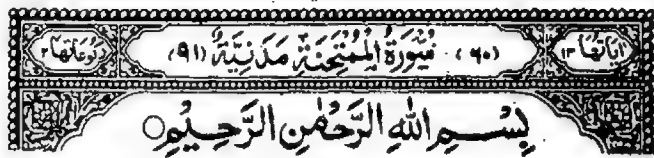 اٰيَاتُهَا ١٣ (٦٠) سُوْرَةُ الْمُمْتَحِنَةِ مَدَنِيَّةٌ (٩١) رُكُوْعَاتُهَا ٢
بِسْمِ اللهِ الرَّحْمٰنِ الرَّحِيْمِ ○